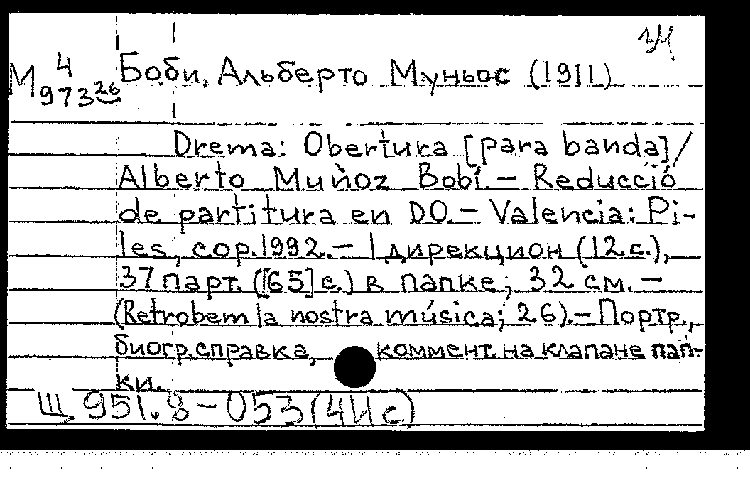 М 4/973 26 Боби, Альберто Муньос (1911)
Drema: Obertura [para banda]/
Alberto Muñoz Bobí.— Reducció
de partitura en DO.— Valencia: Pi-
les, cop.1992.— 1 дирекцион (12 с.),
37 парт. ([65] с.) в папке; 32 см. —
(Retrobem la nostra música; 26).— Портр.,
биогр.справка, коммент. на клапане пап-
ки.
Щ 951.8-053(4Ис)